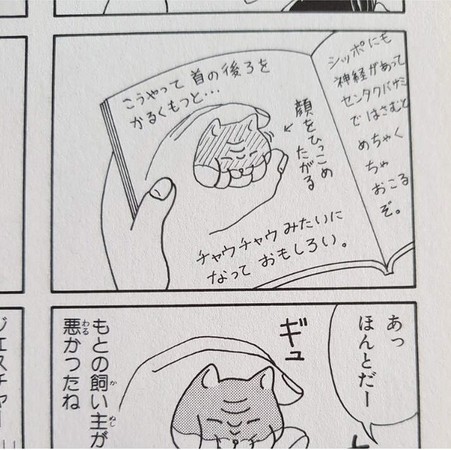 こうやって 首の後ろを
かるくもつと…
顔をひっこめ
たがる
チャウチャウ みたいに
なって おもしろい。
シッポにも
神経があって
センタクバサミ
ではさむと
めちゃく
ちゃ
おこる
ぞ。
あっ
ほんとだー
ギュ
もとの飼い主が
悪かったね
ジェスチャー